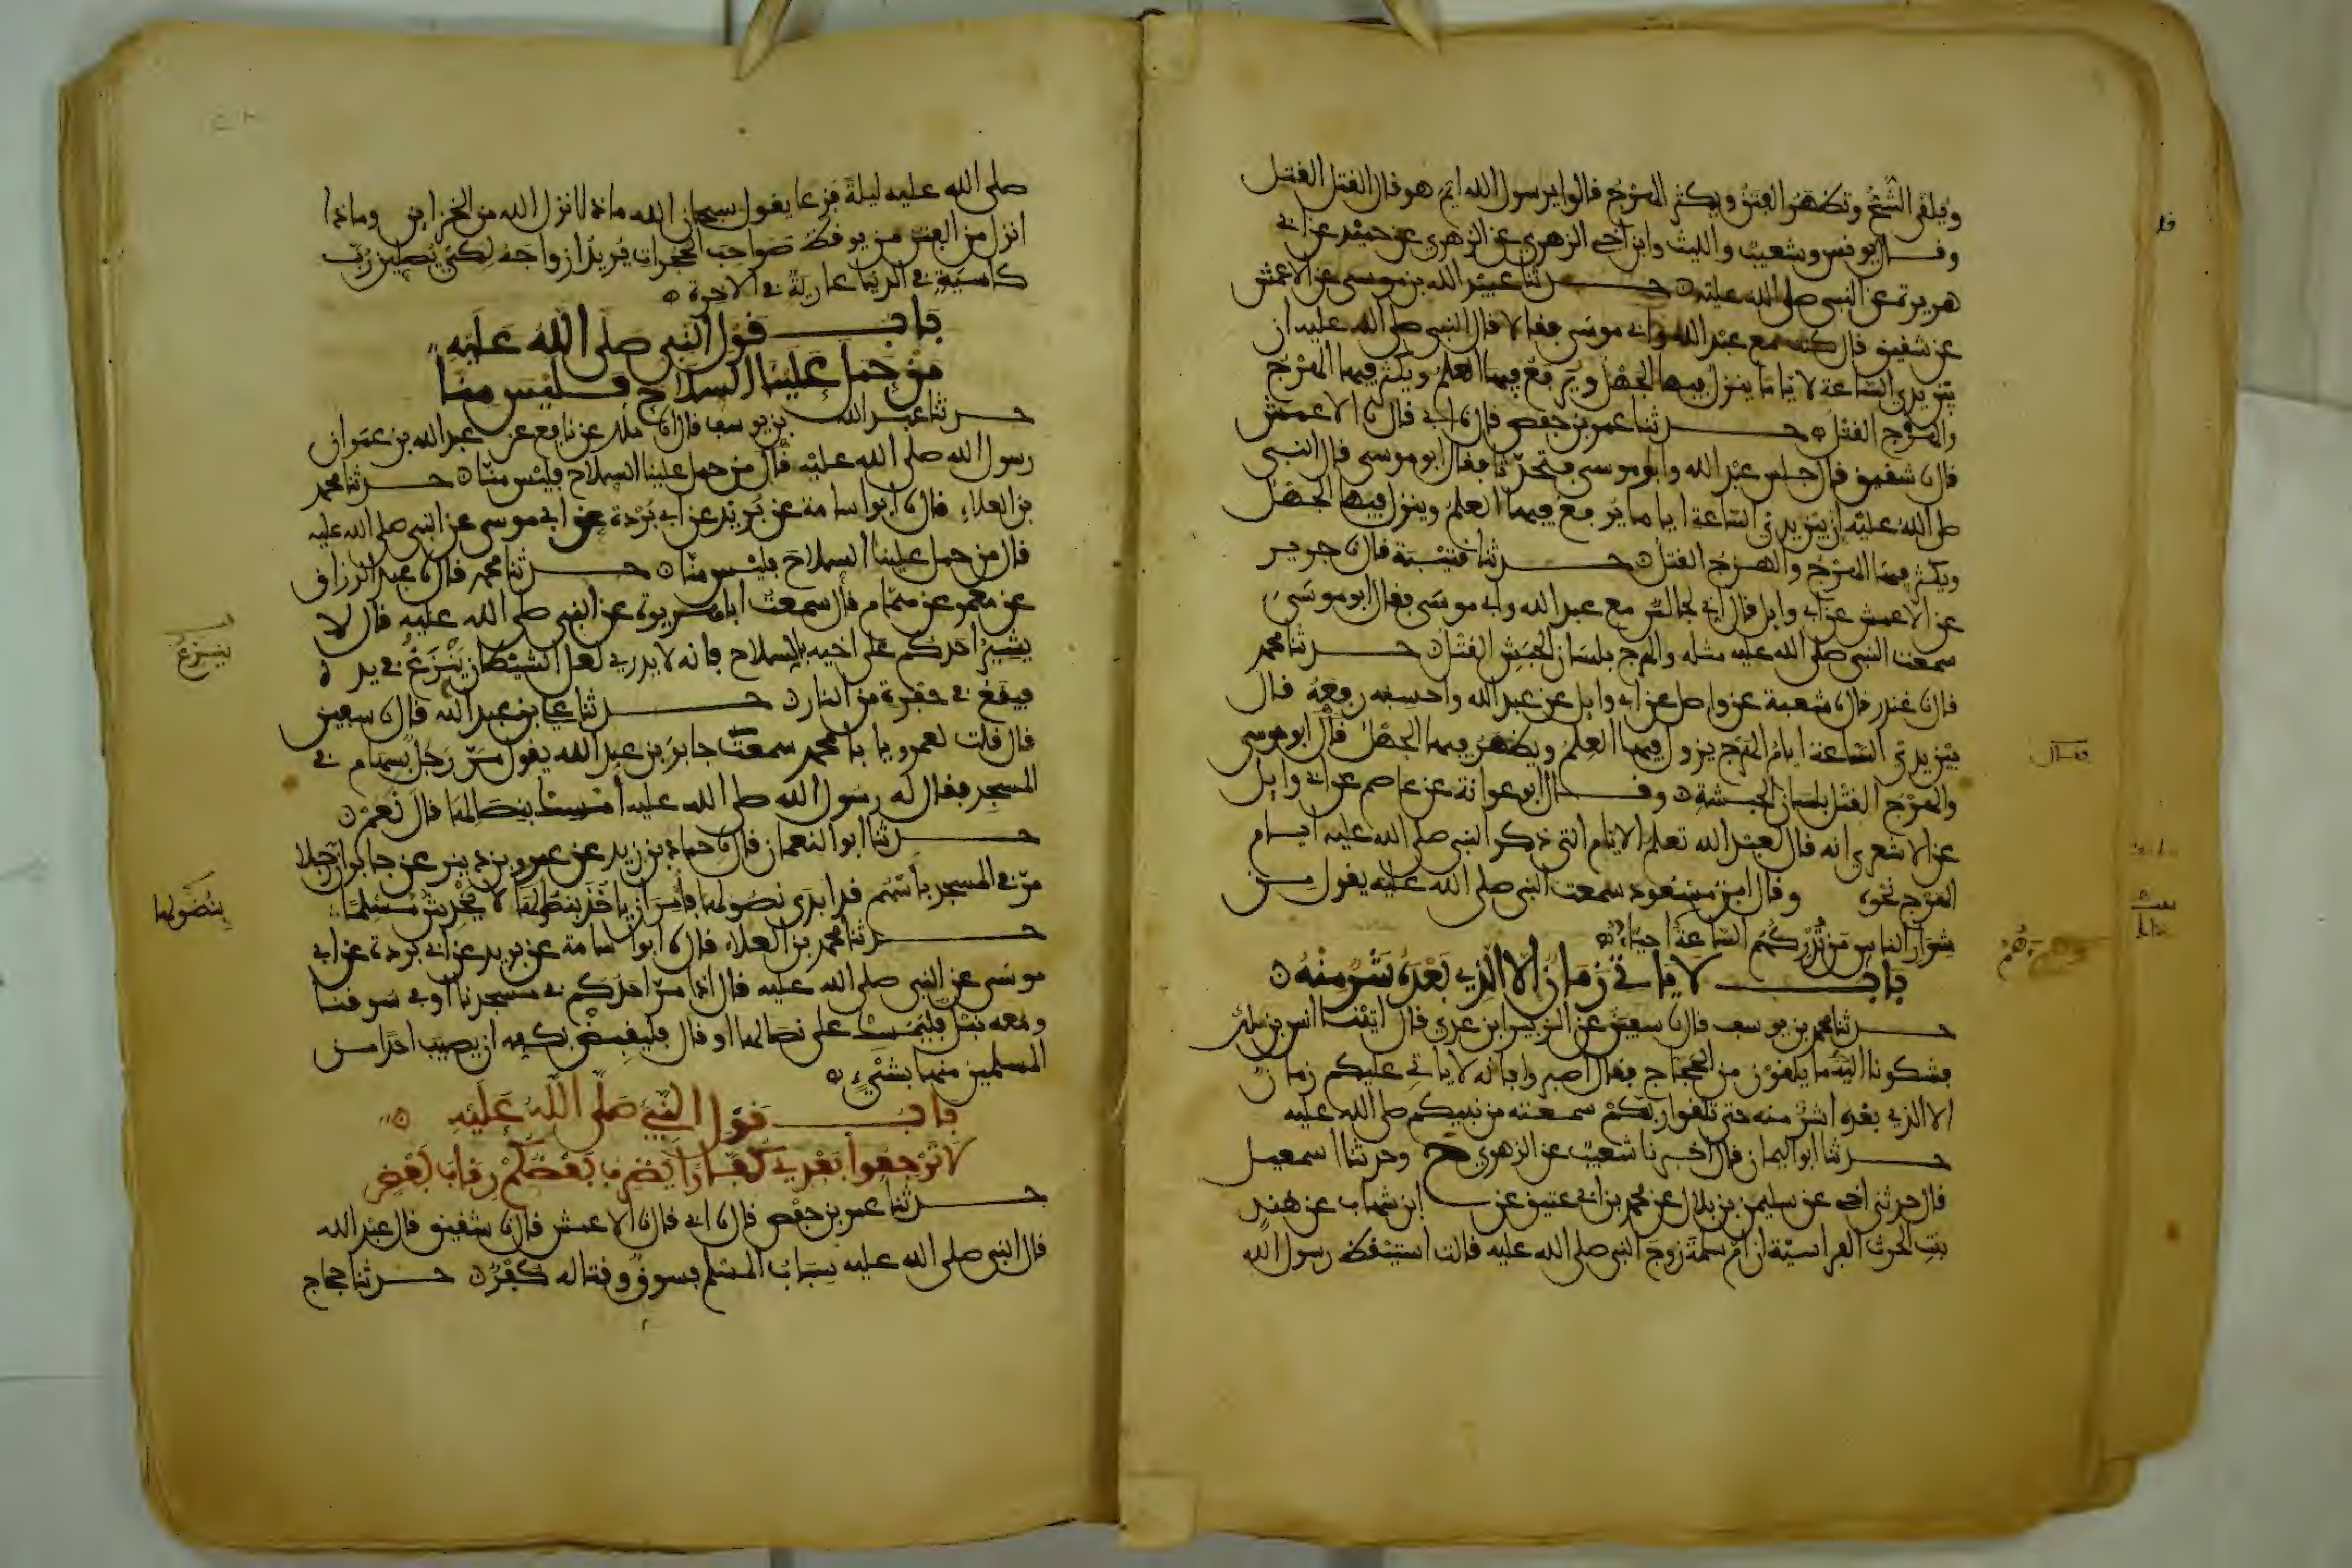 ويلقى الشح وتظهر الفتن ويكثر الهرج قالوا يرسول الله ايم هو قال القتل القتل
وقال يونس وشعيب والليث وابن اخي الزهري عن الزهري عن حميد عن ابي
هريرة عن النبي صلى الله عليه حدثنا عبيد الله بن موسى عن الاعمش
عن شقيق قال كنت مع عبد الله وابي موسى فقالا قال النبي صلى الله عليه ان
بين يدي الساعة لاياما ينزل فيها الجهل ويرفع فيها العلم ويكثر فيها الهرج
والهرج القتل حدثنا عمر بن حفص قال نا ابي قال نا الاعمش
قال نا شقيق قال جلس عبد الله وابو موسى فتحدثا فقال ابو موسى قال النبي
صلى الله عليه ان بين يدي الساعة اياما يرفع فيها العلم وينزل فيها الجهل
ويكثر فيها الهرج والهرج القتل حدثنا قتيبة قال نا جرير
عن الاعمش عن ابي وايل قال اني لجالس مع عبد الله وابي موسى فقال ابو موسى
سمعت النبي صلى الله عليه مثله والهرج بلسان الحبش القتل حدثنا محمد
قال نا غندر قال نا شعبة عن واصل عن ابي وايل عن عبد الله واحسبه رفعه قال
بين يدي الساعة ايام الهرج يزول فيها العلم ويظهر فيها الجهل قال ابو موسى
والهرج القتل بلسان الحبشة وقال ابو عوانة عن عاصم عن ابي وايل
عن الاشعري انه قال لعبد الله تعلم الايام التي ذكر النبي صلى الله عليه ايام
الهرج نحوه وقال ابن مسعود سمعت النبي صلى الله عليه يقول من
شرار الناس من تدركهم الساعة احياء
باب لا ياتي زمان الا الذي بعده شر منه
حدثنا محمد بن يوسف قال نا سفين عن الزبير ابن عدي قال اتينا انس بن ملك
فشكونا اليه ما يلقون من الحجاج فقال اصبروا فانه لا ياتي عليكم زمان
الا الذي بعده اشر منه حتى تلقوا ربكم سمعته من نبيكم صلى الله عليه
حدثنا ابو اليمان قال اخبرنا شعيب عن الزهري ح وحدثنا اسمعيل
قال حدثني اخي عن سليمن بن بلال عن محمد بن ابي عتيق عن ابن شهاب عن هند
بنت الحرث الفراسية ان ام سلمة زوج النبي صلى الله عليه قالت استيقظ رسول الله
صلى الله عليه ليلة فزعا يقول سبحان الله ماذا انزل الله من الخزاين وماذا
انزل من الفتن من يوقظ صواحب الحجرات يريد ازواجه لكي يصلين رب
كاسية في الدنيا عارية في الاخرة
باب قول النبي صلى الله عليه
من حمل علينا السلاح فليس منا
حدثنا عبد الله بن يوسف قال نا ملك عن نافع عن عبد الله بن عمر ان
رسول الله صلى الله عليه قال من حمل علينا السلاح فليس منا حدثنا محمد
بن العلاء قال نا ابو اسامة عن بريد عن ابي بردة عن ابي موسى عن النبي صلى الله عليه
قال من حمل علينا السلاح فليس منا حدثنا محمد قال نا عبد الرزاق
عن معمر عن همام قال سمعت ابا هريرة عن النبي صلى الله عليه قال لا
يشير احدكم على اخيه بالسلاح فانه لا يدري لعل الشيطان ينزغ في يده
فيقع في حفرة من النار حدثنا علي بن عبد الله قال نا سفين
قال قلت لعمرو يا با محمد سمعت جابر بن عبد الله يقول مر رجل بسهام في
المسجد فقال له رسول الله صلى الله عليه امسك بنصالها قال نعم
حدثنا ابو النعمان قال نا حماد بن زيد عن عمرو بن دينر عن جابر ان رجلا
مر في المسجد باسهم قد ابدى نصولها فامر ان ياخذ بنصولها لا يخدش مسلما
حدثنا محمد بن العلاء قال نا ابو اسامة عن بريد عن ابي بردة عن ابي
موسى عن النبي صلى الله عليه قال اذا مر احدكم في مسجدنا او في سوقنا
ومعه نبل فليمسك على نصالها او قال فليقبض بكفه ان يصيب احدا من
المسلمين منها بشيء
باب قول النبي صلى الله عليه
لا ترجعوا بعدي كفارا يضرب بعضكم رقاب بعض
حدثنا عمر بن حفص قال نا ابي قال نا الاعمش قال نا شقيق قال عبد الله
قال النبي صلى الله عليه سباب المسلم فسوق وقتاله كفر حدثنا حجاج
ينزغ
بنصولها